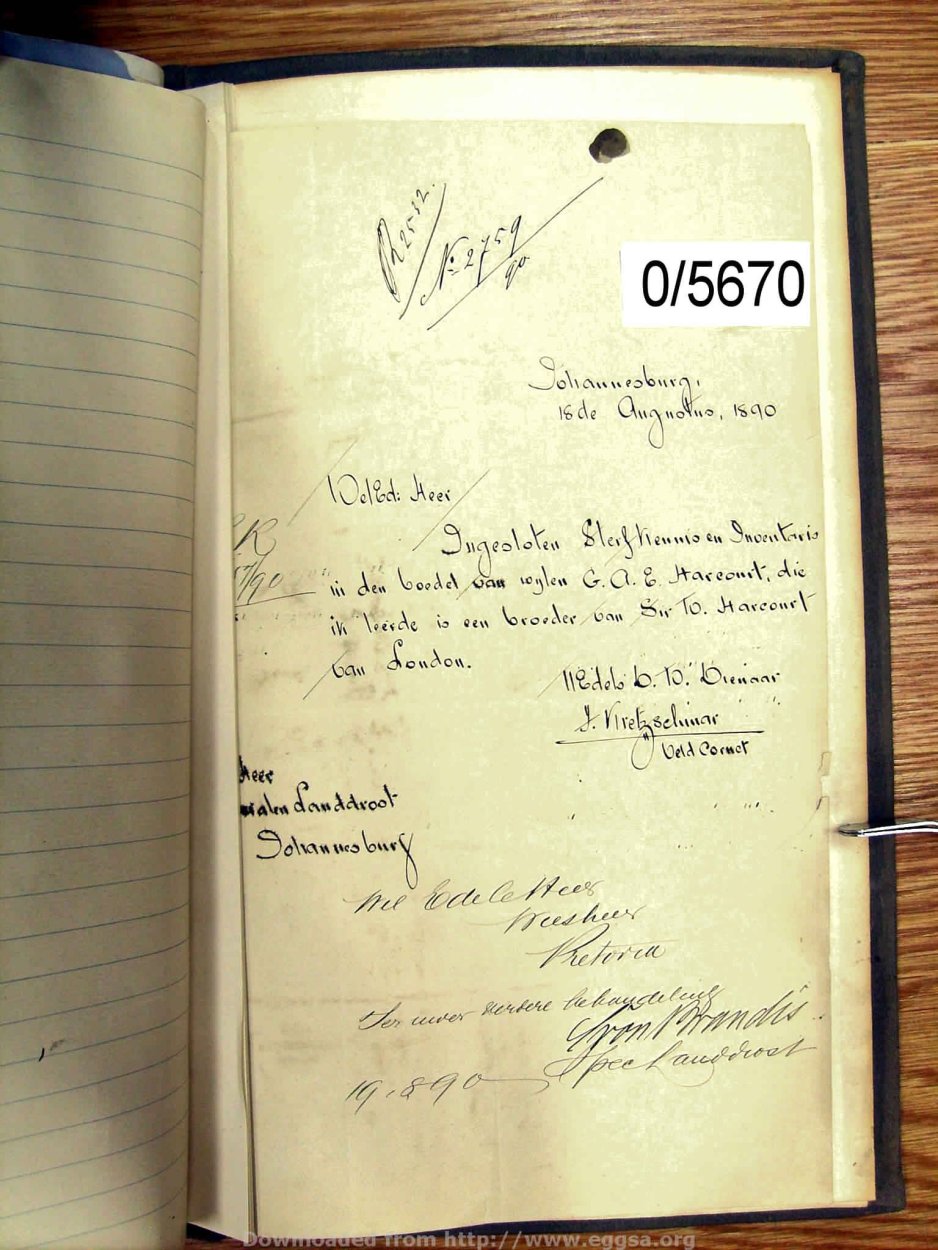 R2532.
No. 2759
90
0/5670
Johannesburg,
18de Augustus, 1890
WelEd: Heer
Ingesloten Sterfkennis en Inventaris
in den boedel van wylen G. A. E. Harcourt, die
ik leerde is een broeder van Sir W. Harcourt
van London.
UEdels D. W. Dienaar
Veld Cornet
Heer
Landdrost
Johannesburg
Wel Edele Heer
Weesheer
Pretoria
Ter uwer verdere behandeling
von Brandis
Spec Landdrost
19.8.90
Downloaded from http://www.eggsa.org